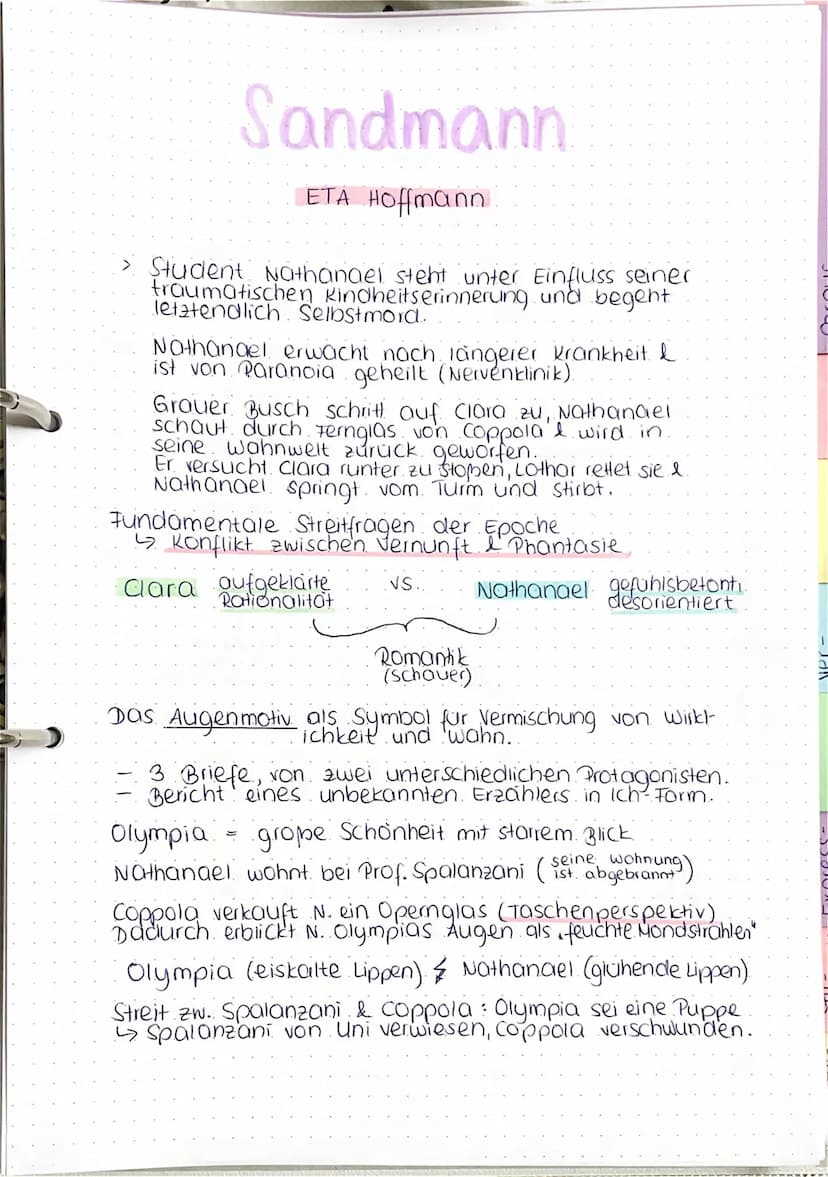 Sandmann
ETA Hoffmann
> Student Nathanael steht unter Einfluss seiner
traumatischen Kindheitserinnerung und begeht
letztendlich Selbstmord.
Nathanael erwacht nach längerer Krankheit &
ist von Paranoia geheilt (Nervenklinik)
Grauer Busch schritt auf Clara zu, Nathanael
schaut durch Fernglas von Coppola & wird in
seine Wahnwelt zurück geworfen.
Er versucht Clara runter zu stoßen, Lothar rettet sie &
Nathanael springt vom Turm und stirbt.
Fundamentale Streitfragen der Epoche
↳ Konflikt zwischen Vernunft & Phantasie
Clara aufgeklärte Rationalität vs. Nathanael gefühlsbetont, desorientiert
Romantik
(schauer)
Das Augenmotiv als Symbol für Vermischung von Wirkl-
ichkeit und Wahn.
- 3 Briefe, von zwei unterschiedlichen Protagonisten.
- Bericht eines unbekannten Erzählers in Ich-Form.
Olympia = große Schönheit mit starrem Blick
Nathanael wohnt bei Prof. Spalanzani (seine Wohnung ist abgebrannt)
Coppola verkauft N. ein Opernglas (Taschenperspektiv)
Dadurch erblickt N. Olympias Augen als „feuchte Mondstrahlen"
Olympia (eiskalte Lippen) ↯ Nathanael (glühende Lippen)
Streit zw. Spalanzani & Coppola : Olympia sei eine Puppe
↳ Spalanzani von Uni verwiesen, Coppola verschwunden.